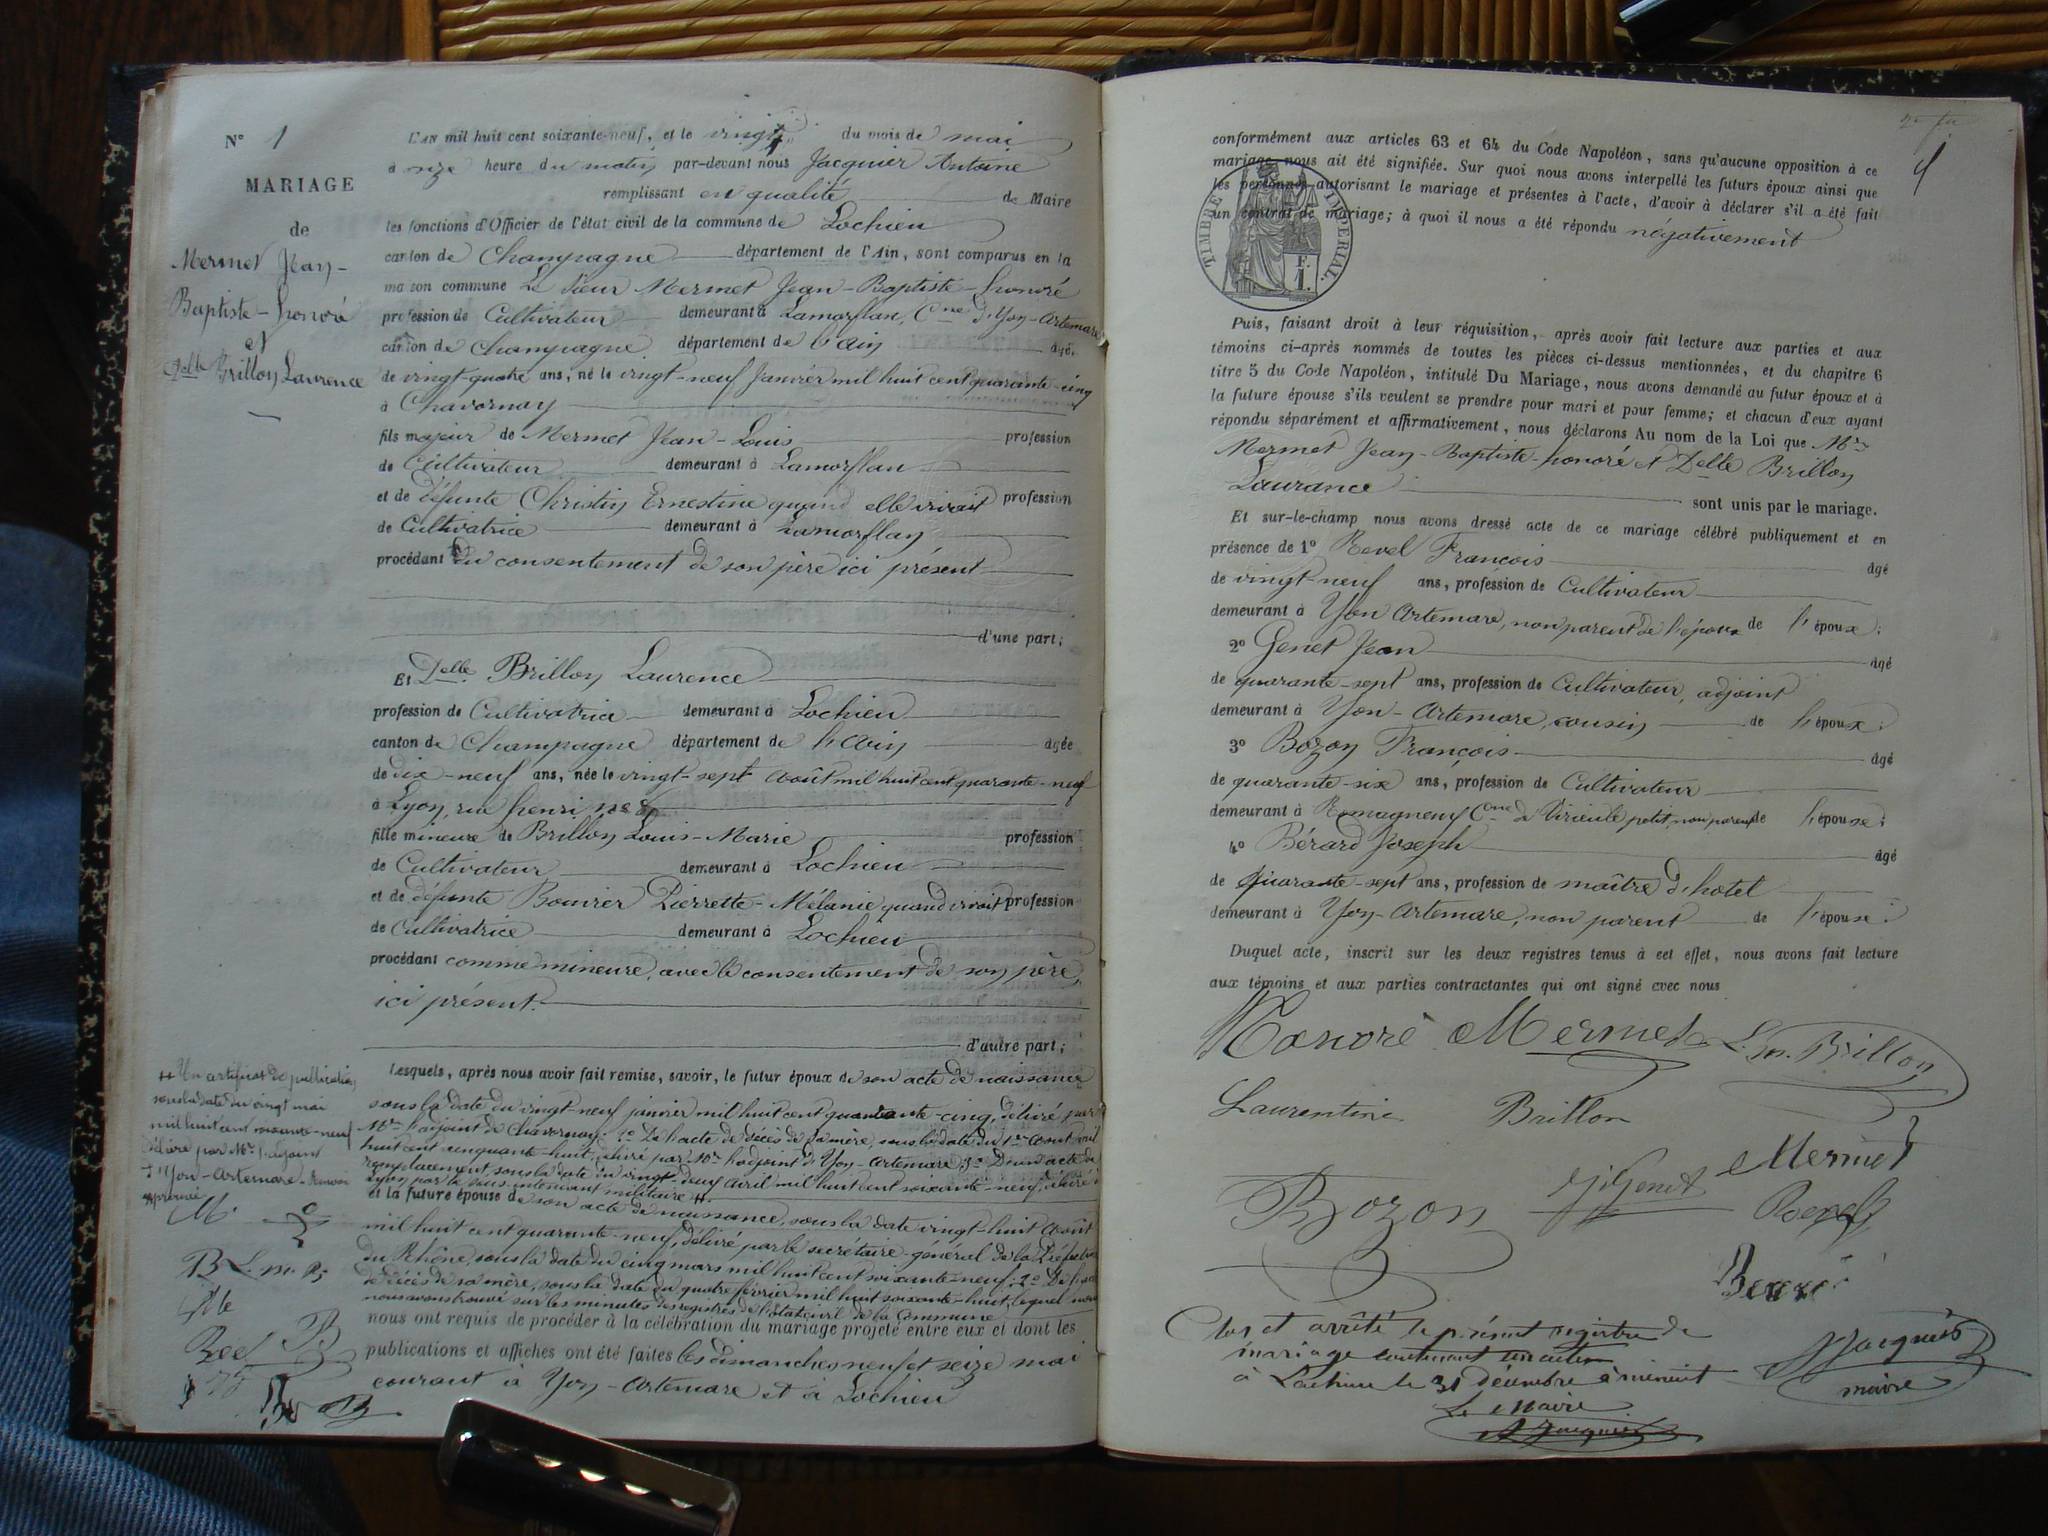 N° 1
MARIAGE
de
Mermet Jean-
Baptiste-honoré
et
Delle Brillon Laurence
L'AN mil huit cent soixante-neuf, et le vingt du mois de mai
à onze heure du matin par-devant nous Jacquier Antoine
remplissant en qualité de Maire
les fonctions d'Officier de l'état civil de la commune de Lochieu
canton de Champagne département de l'Ain, sont comparus en la
maison commune Le Sieur Mermet Jean-Baptiste-honoré
profession de Cultivateur demeurant à Lamorflan, Cne d'Yon-Artemare
canton de Champagne département de l'ain âgé
de vingt-quatre ans, né le vingt-neuf Janvier mil huit cent quarante-cinq
à Chavornay
fils majeur de Mermet Jean-Louis profession
de Cultivateur demeurant à Lamorflan
et de défunte Christin Ernestine quand elle vivait profession
de Cultivatrice demeurant à Lamorflan
procédant du consentement de son père ici présent
d'une part;
Et Delle Brillon Laurence
profession de Cultivatrice demeurant à Lochieu
canton de Champagne département de l'ain âgée
de dix-neuf ans, née le vingt-sept août mil huit cent quarante-neuf
à Lyon, rue henri
fille mineure de Brillon Louis-Marie profession
de Cultivateur demeurant à Lochieu
et de défunte Bouvier Pierrette-Mélanie quand vivait profession
de Cultivatrice demeurant à Lochieu
procédant comme mineure, avec le consentement de son père,
ici présent.
d'autre part;
Lesquels, après nous avoir fait remise, savoir, le futur époux de son acte de naissance
sous la date du vingt-neuf janvier mil huit cent quarante-cinq, délivré par
Mr l'adjoint de Chavornay; 2° De l'acte de décès de sa mère, sous la date du 1er août mil
huit cent cinquante-huit, délivré par Mr l'adjoint d'Yon-Artemare; 3° D'un acte de
remplacement sous la date du vingt-deux avril mil huit cent soixante-neuf, délivré à
Lyon par le sous-intendant militaire
et la future épouse de son acte de naissance, sous la date vingt-huit août
mil huit cent quarante-neuf, délivré par le secrétaire-général de la Préfecture
du Rhône, sous la date du cinq mars mil huit cent soixante-neuf; 2° De l'acte
de décès de sa mère, sous la date du quatre février mil huit soixante-huit, lequel nous
nous avons trouvé sur les minutes des registres de l'état civil de la Commune
nous ont requis de procéder à la célébration du mariage projeté entre eux et dont les
publications et affiches ont été faites les dimanches neuf et seize mai
courant à Yon-Artemare et à Lochieu
Un certificat de publication
sous la date du vingt mai
mil huit cent soixante-neuf
délivré par Mr l'adjoint
d'Yon-Artemare. Renvoi
approuvé
M.
B L. m. B
conformément aux articles 63 et 64 du Code Napoléon, sans qu'aucune opposition à ce
mariage nous ait été signifiée. Sur quoi nous avons interpellé les futurs époux ainsi que
les personnes autorisant le mariage et présentes à l'acte, d'avoir à déclarer s'il a été fait
un contrat de mariage; à quoi il nous a été répondu négativement
TIMBRE IMPERIAL.
F.
1.
Puis, faisant droit à leur réquisition, après avoir fait lecture aux parties et aux
témoins ci-après nommés de toutes les pièces ci-dessus mentionnées, et du chapitre 6
titre 5 du Code Napoléon, intitulé Du Mariage, nous avons demandé au futur époux et à
la future épouse s'ils veulent se prendre pour mari et pour femme; et chacun d'eux ayant
répondu séparément et affirmativement, nous déclarons Au nom de la Loi que Mr
Mermet Jean-Baptiste-honoré et Delle Brillon
Laurance sont unis par le mariage.
Et sur-le-champ nous avons dressé acte de ce mariage célébré publiquement et en
présence de 1° Revel François âgé
de vingt-neuf ans, profession de Cultivateur
demeurant à Yon Artemare, non parent de l'époux de l'époux;
2° Genet Jean âgé
de quarante-sept ans, profession de Cultivateur, adjoint
demeurant à Yon-Artemare, cousin de l'époux;
3° Bozon François âgé
de quarante-six ans, profession de Cultivateur
demeurant à Romagneux Cne de Virieu le petit, non parent de l'épouse;
4° Bérard Joseph âgé
de quarante-sept ans, profession de maître d'hotel
demeurant à Yon-Artemare, non parent de l'épouse;
Duquel acte, inscrit sur les deux registres tenus à cet effet, nous avons fait lecture
aux témoins et aux parties contractantes qui ont signé avec nous
Honoré Mermet L. m. Brillon
Laurentine Brillon
Mermet
Bozon J. Genet Revel
Berard
Clos et arrêté le présent registre de
mariage contenant un acte
à Lochieu le 31 décembre à minuit
Le Maire
A Jacquier
Jacquier
maire